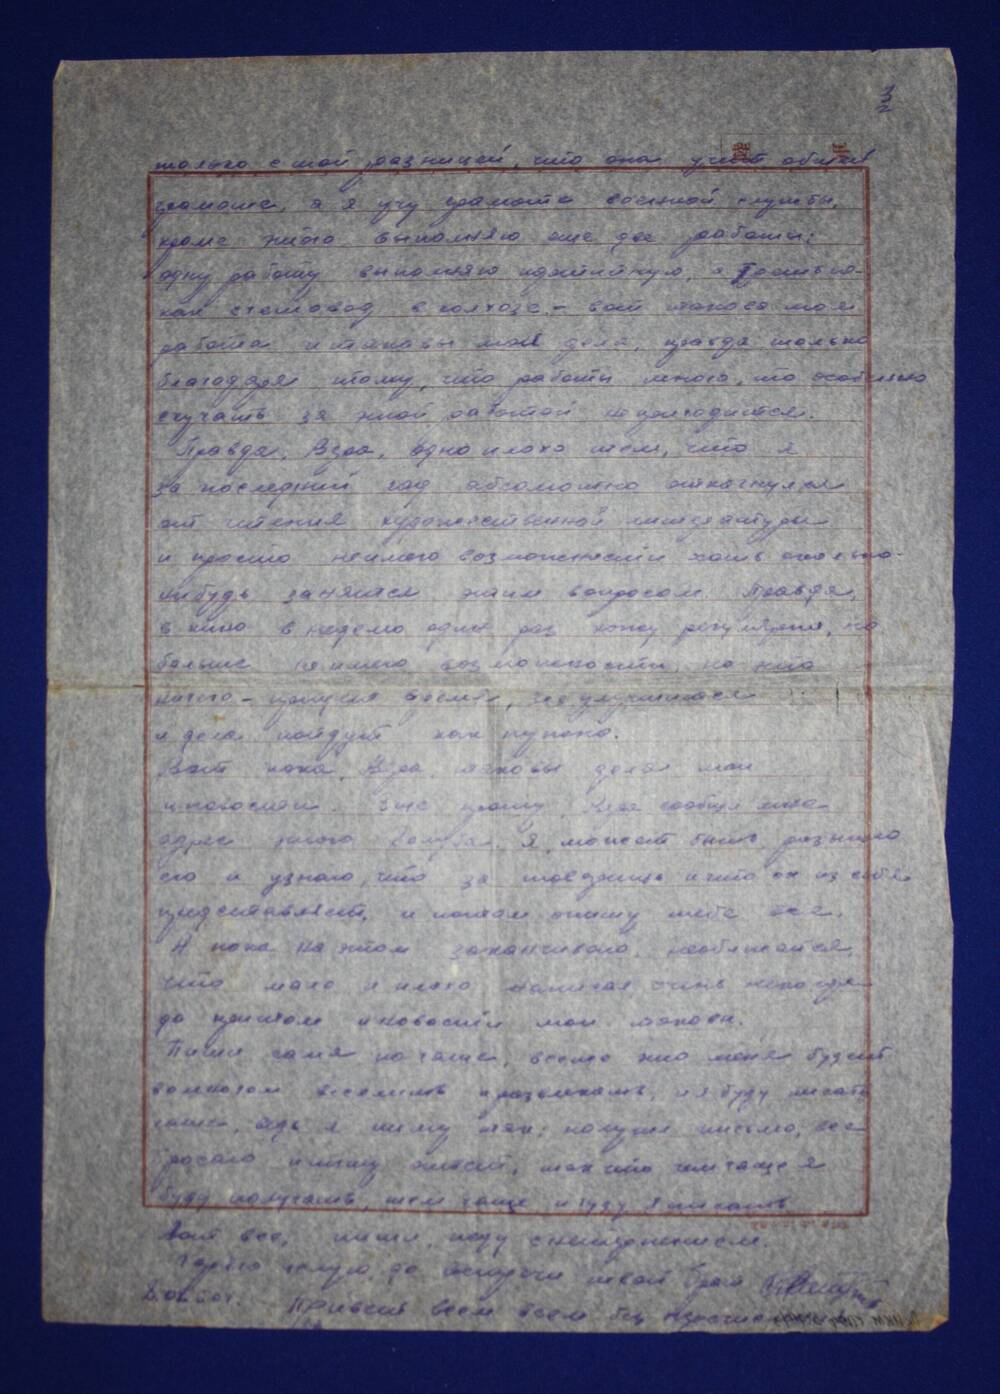 только с той разницей, что она учит общей
грамоте, а я учу грамоте военной службы,
кроме этого выполняю еще две работы:
одну работу выполняю партийную, а
как счетовод в колхозе - вот такова моя
работа и таковы мои дела, правда только
благодаря тому, что работы много, то особенно
скучать за этой работой не приходится.
Правда, Вера, одно плохо тем, что я
за последний год абсолютно откачнулся
от чтения художественной литературы
и просто не имею возможности хоть сколько-
нибудь заняться этим вопросом. Правда,
в кино в неделю один раз хожу регулярно, но
больше не имею возможности, но это
ничего - придет время, все улучшится
и дела пойдут как нужно.
Вот пока, Вера, таковы дела мои
и новости. Еще прошу, Вера сообщи мне
адрес этого Я может быть разыщу
его и узнаю, что за и что он из себя
представляет, и потом опишу тебе все.
А пока на этом заканчиваю, не обижайся,
что мало и плохо написал, очень некогда
да притом и новости мои таковы.
Пиши сама почаще, всего это меня будет
веселить и развлекать, и я буду писать
чаще, ведь я пишу так: получил письмо, все
бросаю и пишу ответ, так что чем чаще я
буду получать, тем чаще и буду писать
Вот все, пиши, жду с нетерпением.
Горячо целую, до встречи твой брат
Привет всем всем без